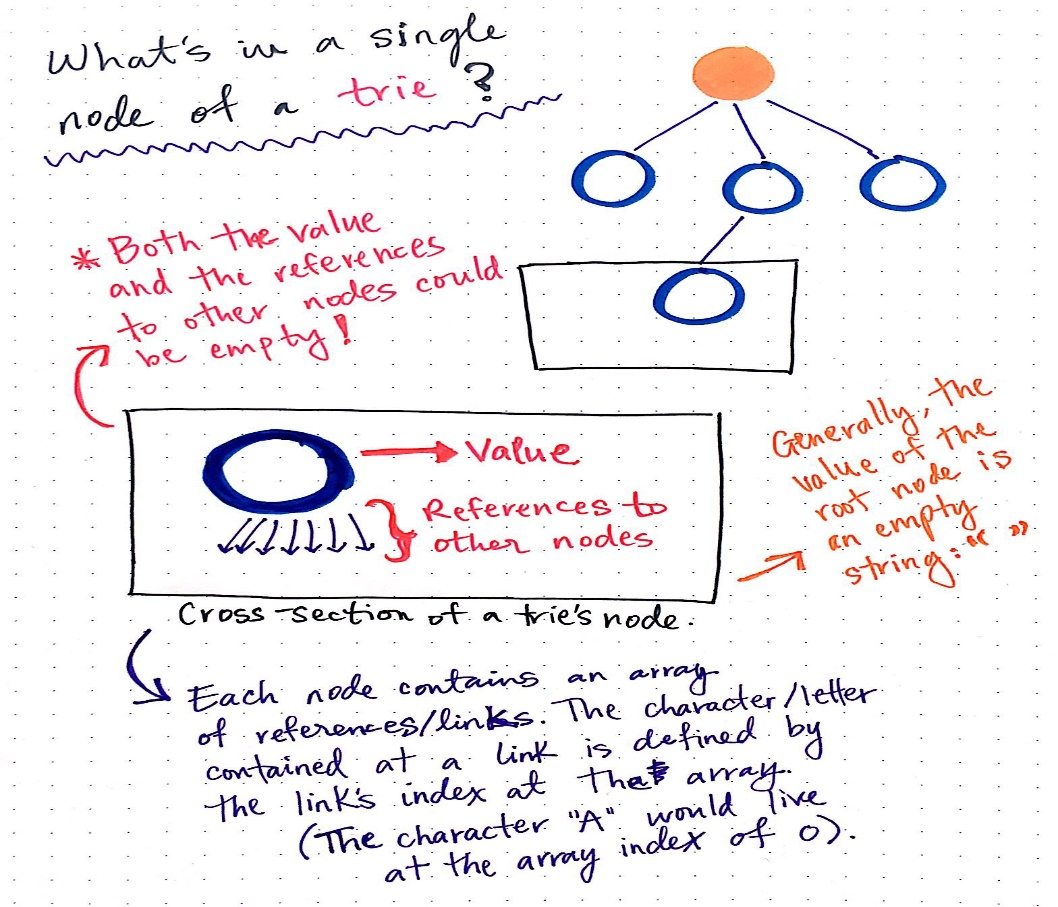 What's in a single
node of a trie?
* Both the value
and the references
to other nodes could
be empty!
Value
References to
other nodes
Generally, the
value of the
root node is
an empty
string: “ ”
Cross-section of a trie's node.
Each node contains an array
of references/links. The character/letter
contained at a link is defined by
the link's index at that array.
(The character "A" would live
at the array index of 0).